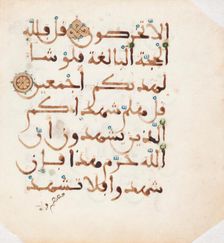 الا تخرصون قل فلله
الحجة البالغة فلو شا
لهديكم أجمعين
قل هلم شهداكم
الذين يشهدون أن
الله حرم هذا فإن
شهدوا فلا تشهد
معهم ولا